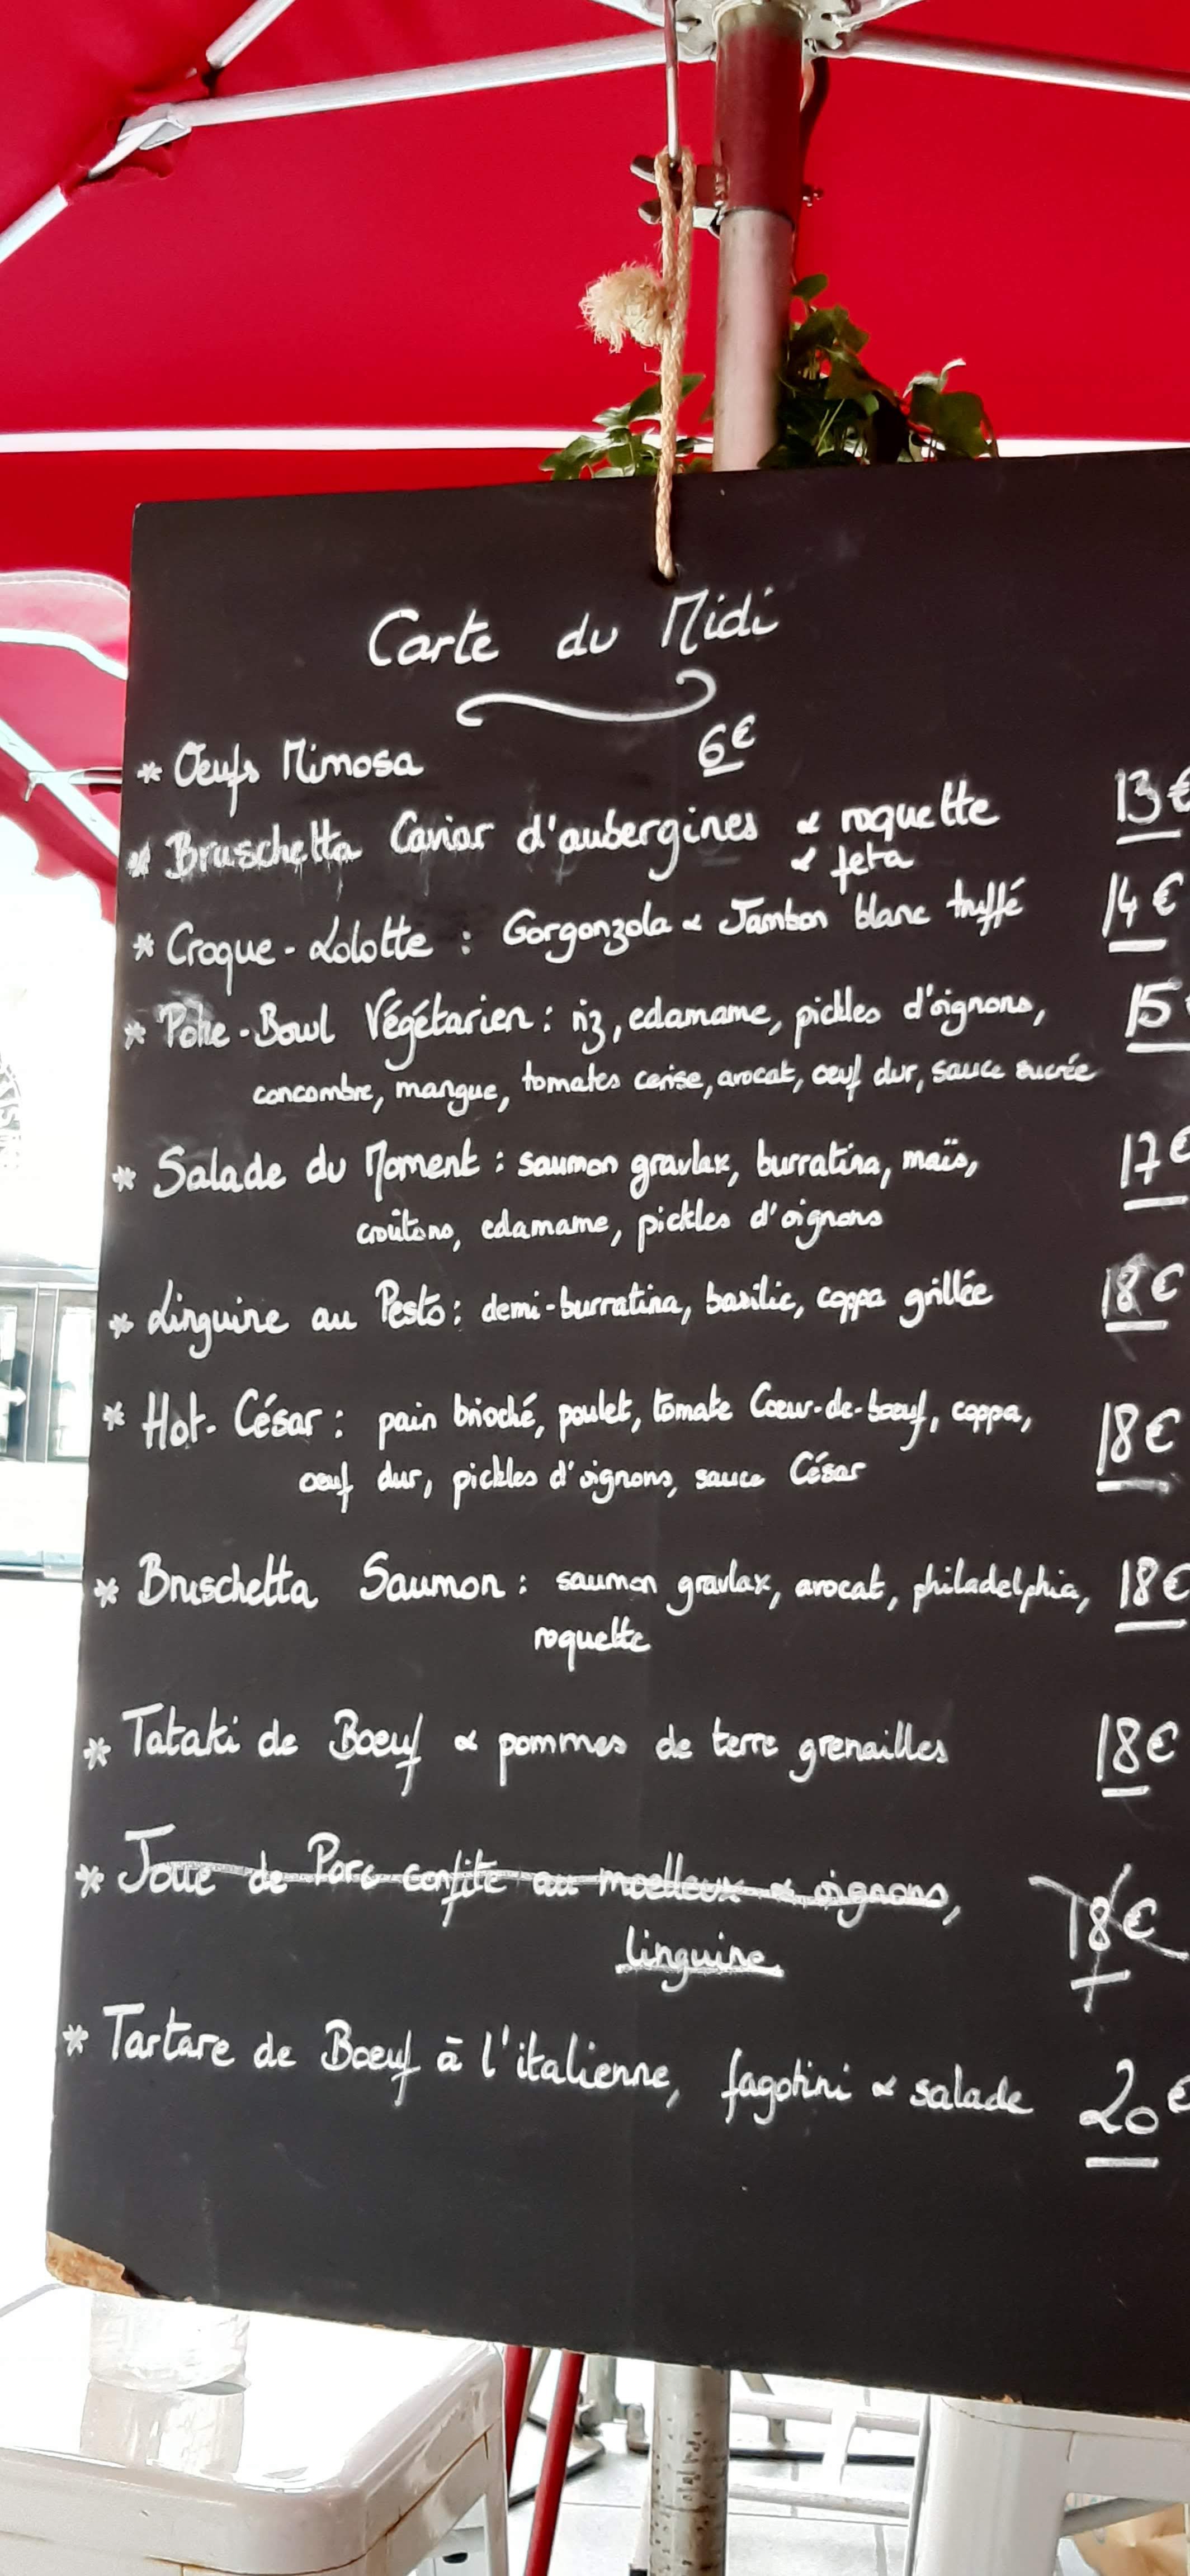 Carte du Midi
* Oeufs Mimosa 6€
* Bruschetta Caviar d'aubergines & roquette 13€
& feta
* Croque-Lolotte : Gorgonzola & Jambon blanc truffé 14€
* Poke-Bowl Végétarien : riz, edamame, pickles d'oignons, 15
concombre, mangue, tomates cerise, avocat, oeuf dur, sauce sucrée
* Salade du Moment : saumon gravlax, burratina, maïs, 17€
croûtons, edamame, pickles d'oignons
* Linguine au Pesto : demi-burratina, basilic, coppa grillée 18€
* Hot-César : pain brioché, poulet, tomate Coeur-de-boeuf, coppa, 18€
oeuf dur, pickles d'oignons, sauce César
* Bruschetta Saumon : saumon gravlax, avocat, philadelphia, 18€
roquette
* Tataki de Boeuf & pommes de terre grenailles 18€
* Joue de Porc confite au moelleux & oignons, 18€
linguine
* Tartare de Boeuf à l'italienne, fagotini & salade 20€